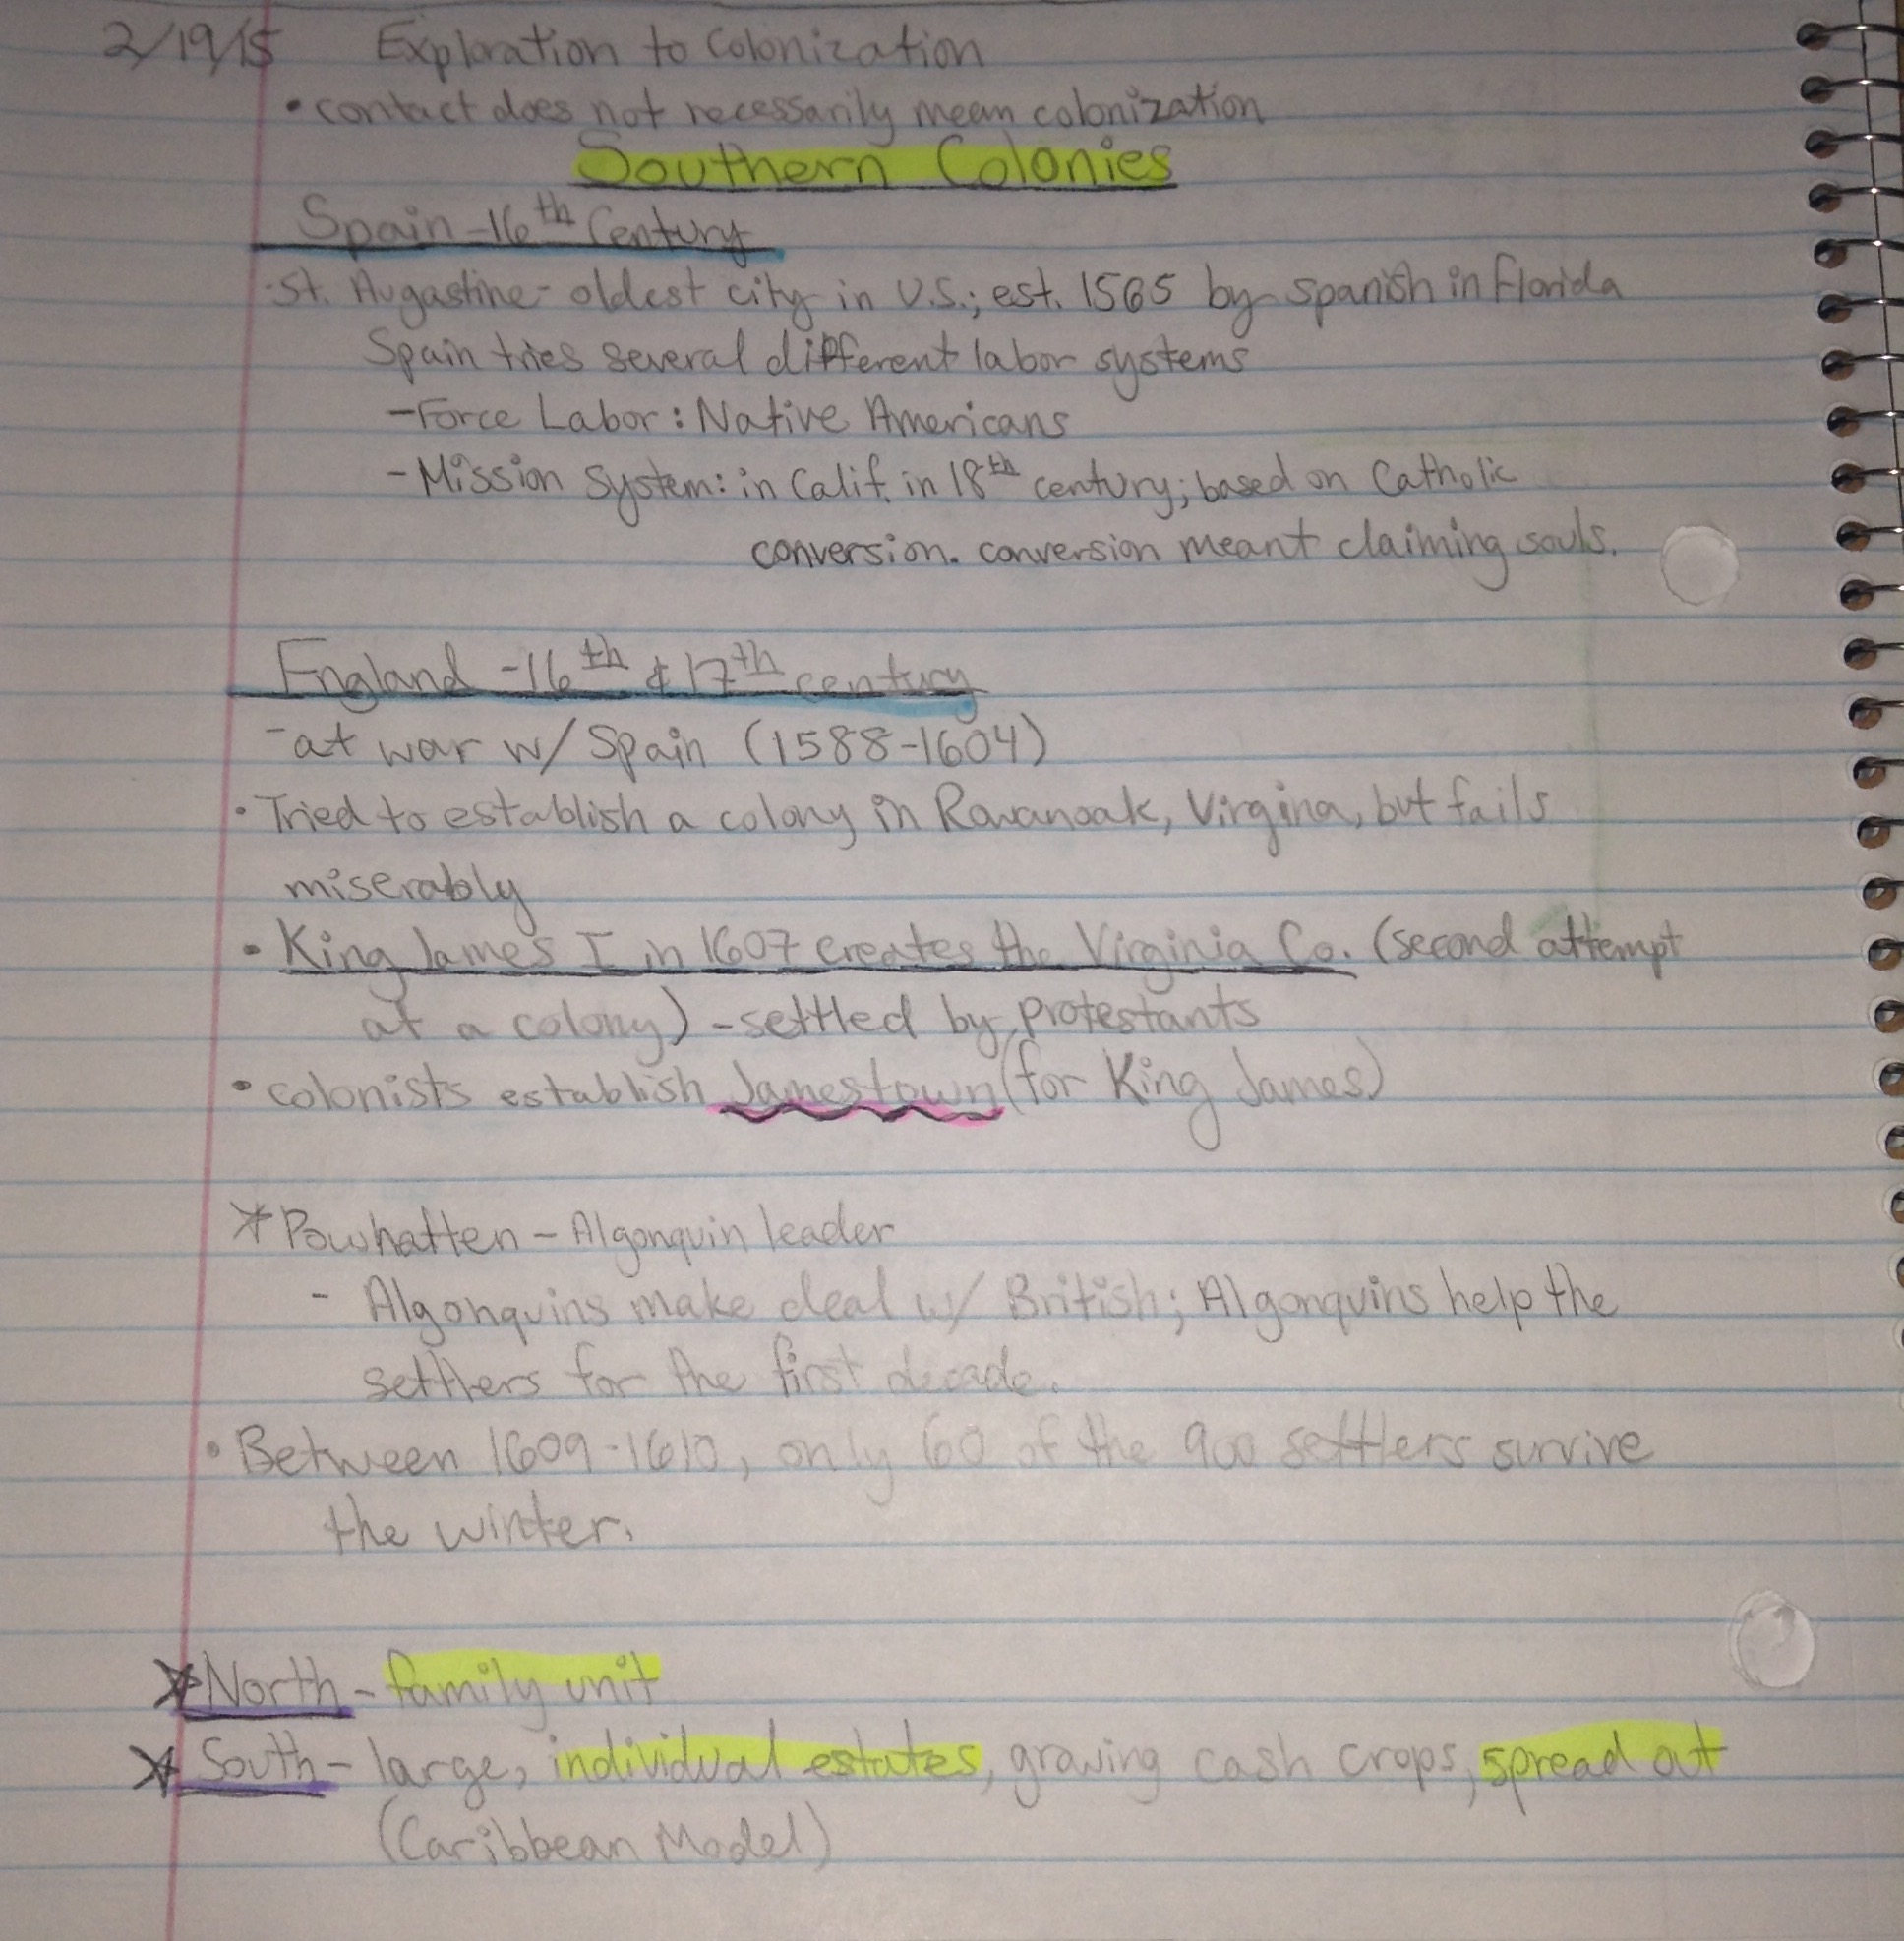 2/19/15 Exploration to Colonization
• contact does not necessarily mean colonization
Southern Colonies
Spain - 16th Century
- St. Augastine - oldest city in U.S.; est. 1565 by spanish in Florida
Spain tries several different labor systems
- Force Labor: Native Americans
- Mission System: in Calif. in 18th century; based on Catholic
conversion. conversion meant claiming souls.
England - 16th & 17th century
- at war w/ Spain (1588-1604)
• Tried to establish a colony in Rowanoak, Virgina, but fails
miserably
• King James I in 1607 creates the Virginia Co. (second attempt
at a colony) - settled by protestants
• colonists establish Jamestown (for King James)
* Powhatten - Algonquin leader
- Algonquins make deal w/ British; Algonquins help the
settlers for the first decade.
• Between 1609-1610, only 60 of the 900 settlers survive
the winter.
* North - family unit
* South - large, individual estates, growing cash crops, spread out
(Caribbean Model)